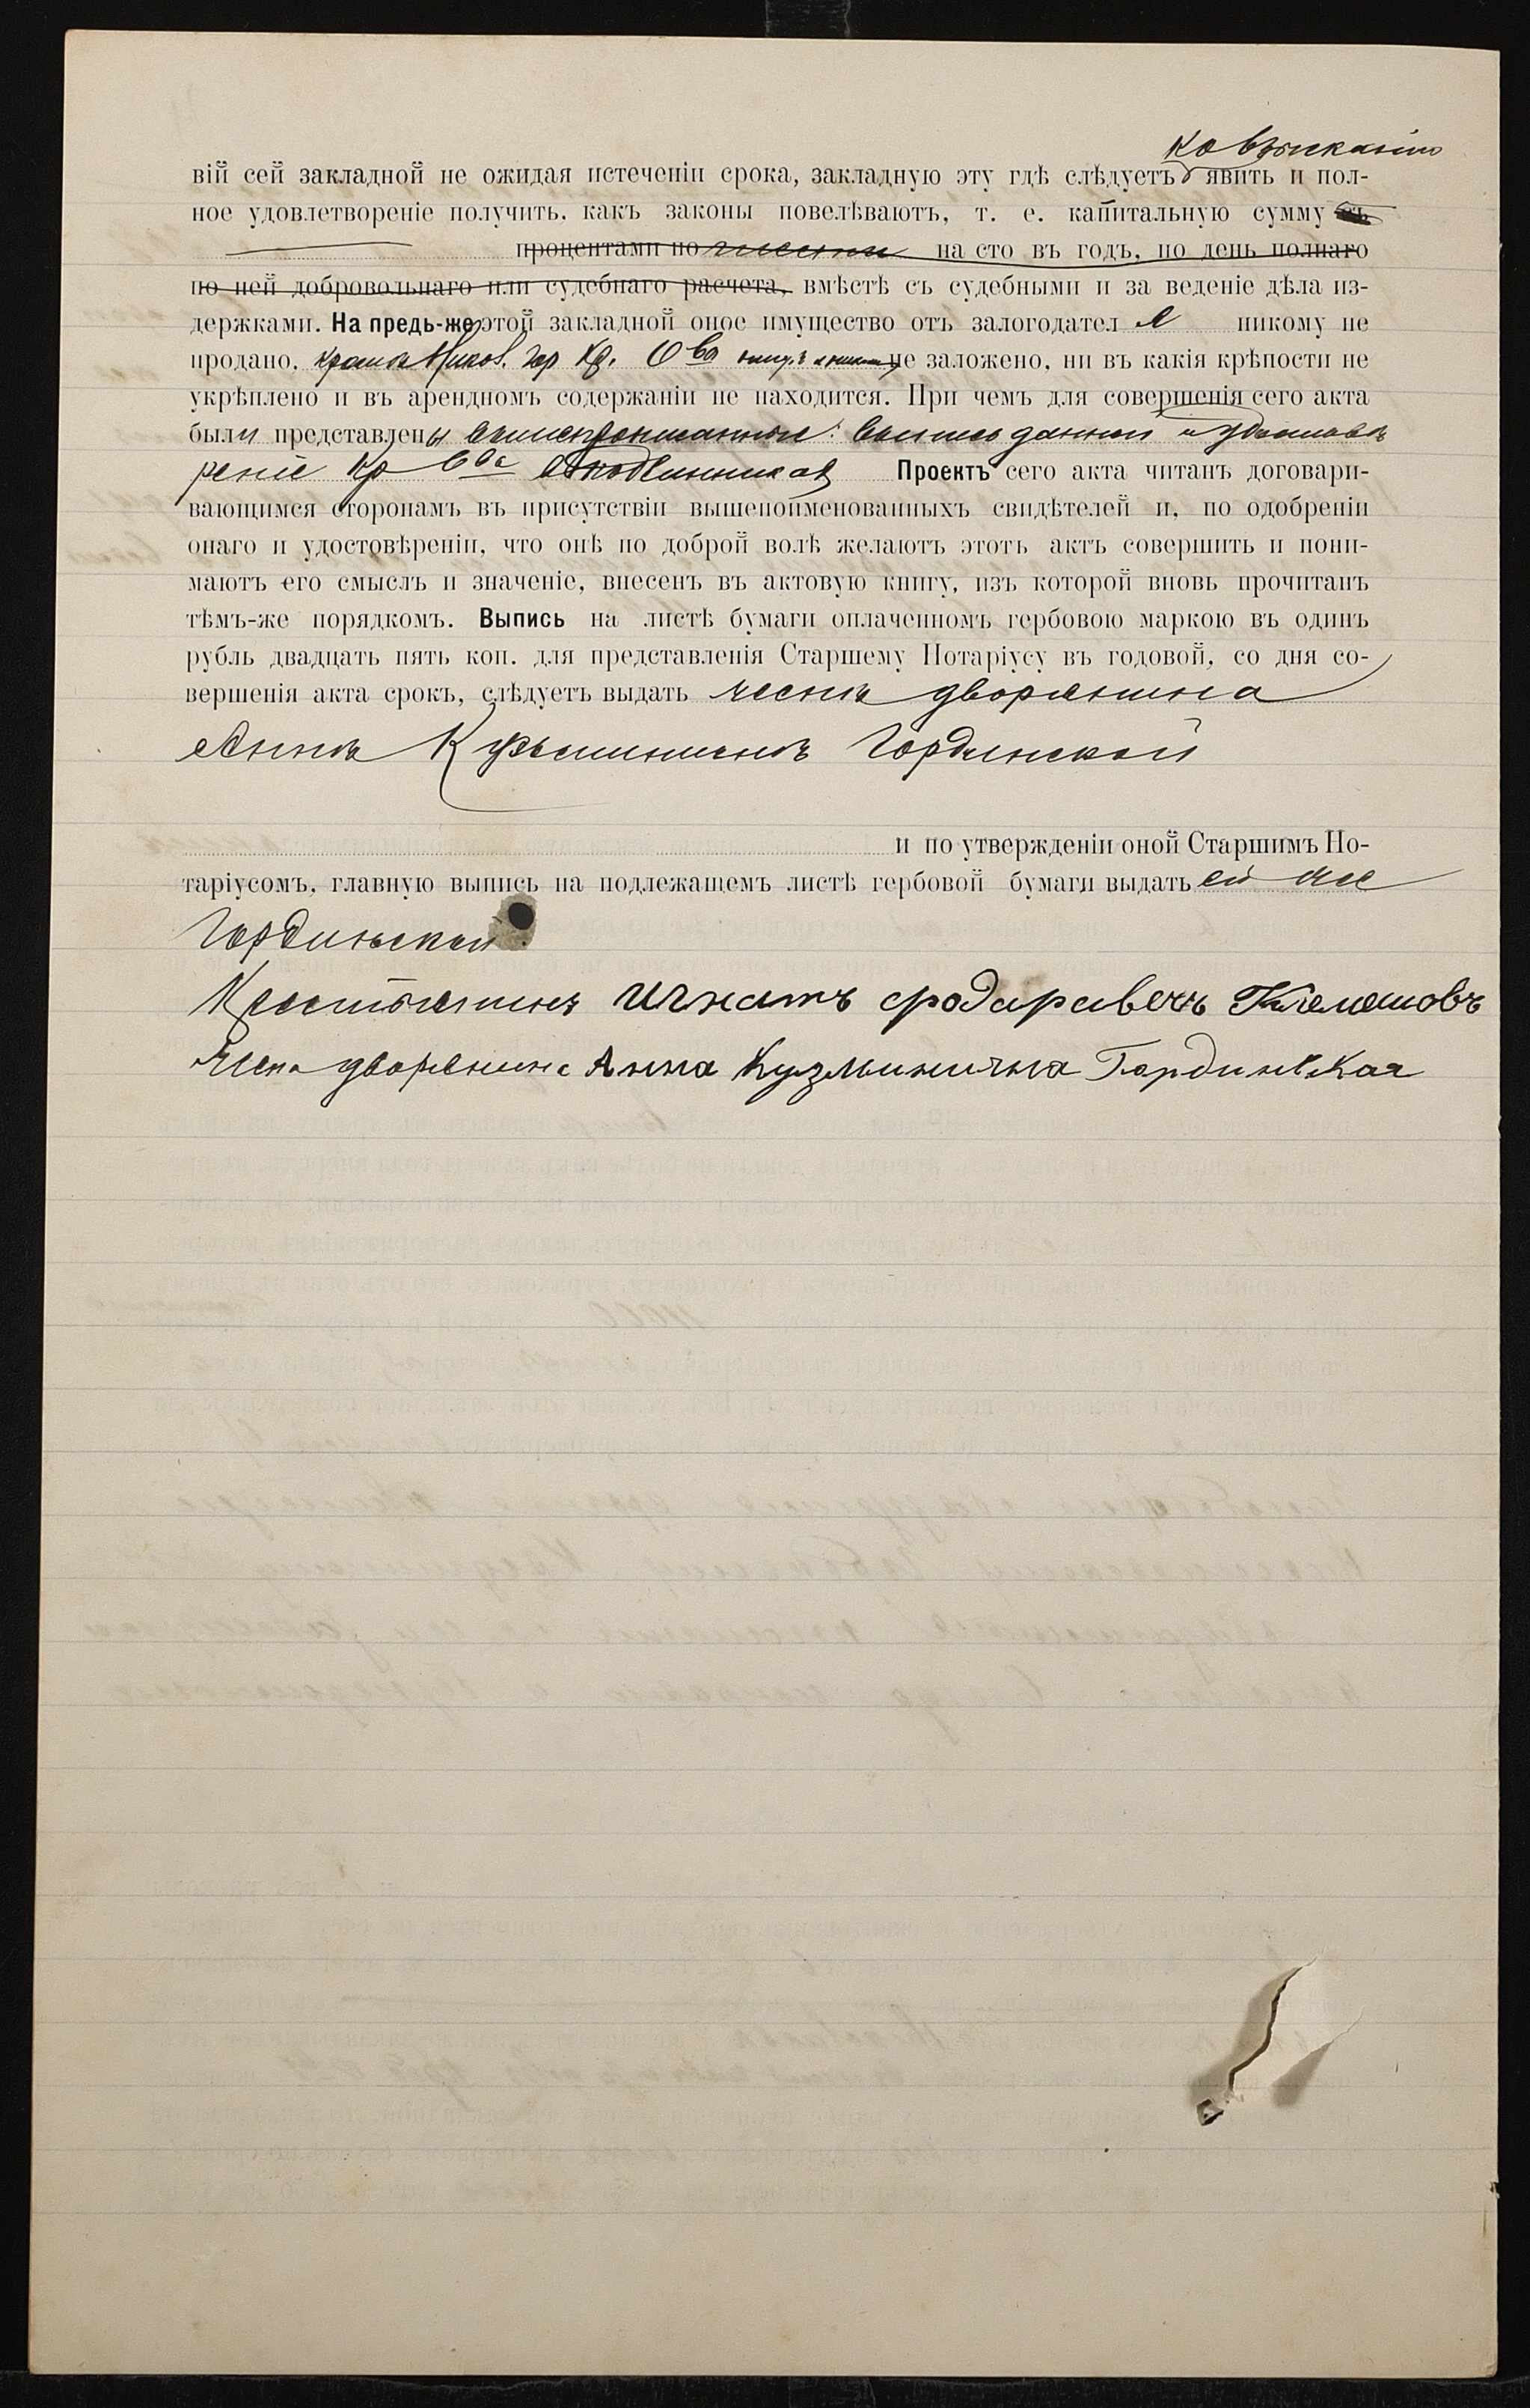 ко взысканію
вій сей закладной не ожидая истеченіи срока, закладную эту гдѣ слѣдуетъ явить и пол-
ное удовлетвореніе получить. какъ законы повелѣваютъ, т. е. капитальную сумму съ
процентами по на сто въ годъ, по день полнаго
по ней добровольнаго или судебнаго расчета, вмѣстѣ съ судебными и за веденіе дѣла из-
держками. На предь-же этой закладной оное имущество отъ залогодател я никому не
продано, кромѣ Ников. Гор Кр. О ва не заложено, ни въ какія крѣпости не
укрѣплено и въ арендномъ содержаніи не находится. При чемъ для совершенія сего акта
были представлены вышепрописанные: выпись данной и удостовѣ
реніе Кр О ва въ подлинникахъ Проектъ сего акта читанъ договари-
вающимся сторонамъ въ присутствіи вышепоименованныхъ свидѣтелей и, по одобреніи
онаго и удостовѣреніи, что онѣ по доброй волѣ желаютъ этотъ актъ совершить и пони-
маютъ его смыслъ и значеніе, внесенъ въ актовую книгу, изъ которой вновь прочитанъ
тѣмъ-же порядкомъ. Выпись на листѣ бумаги оплаченномъ гербовою маркою въ одинъ
рубль двадцать пять коп. для представленія Старшему Нотаріусу въ годовой, со дня со-
вершенія акта срокъ, слѣдуетъ выдать женѣ дворянина
Аннѣ Кузьминичнѣ Гординской
и по утвержденіи оной Старшимъ Но-
таріусомъ, главную выпись на подлежащемъ листѣ гербовой бумаги выдать ей же
Гординской.
Крестьянинъ Игнатъ
Жена дворянина Анна Кузминична Гординская